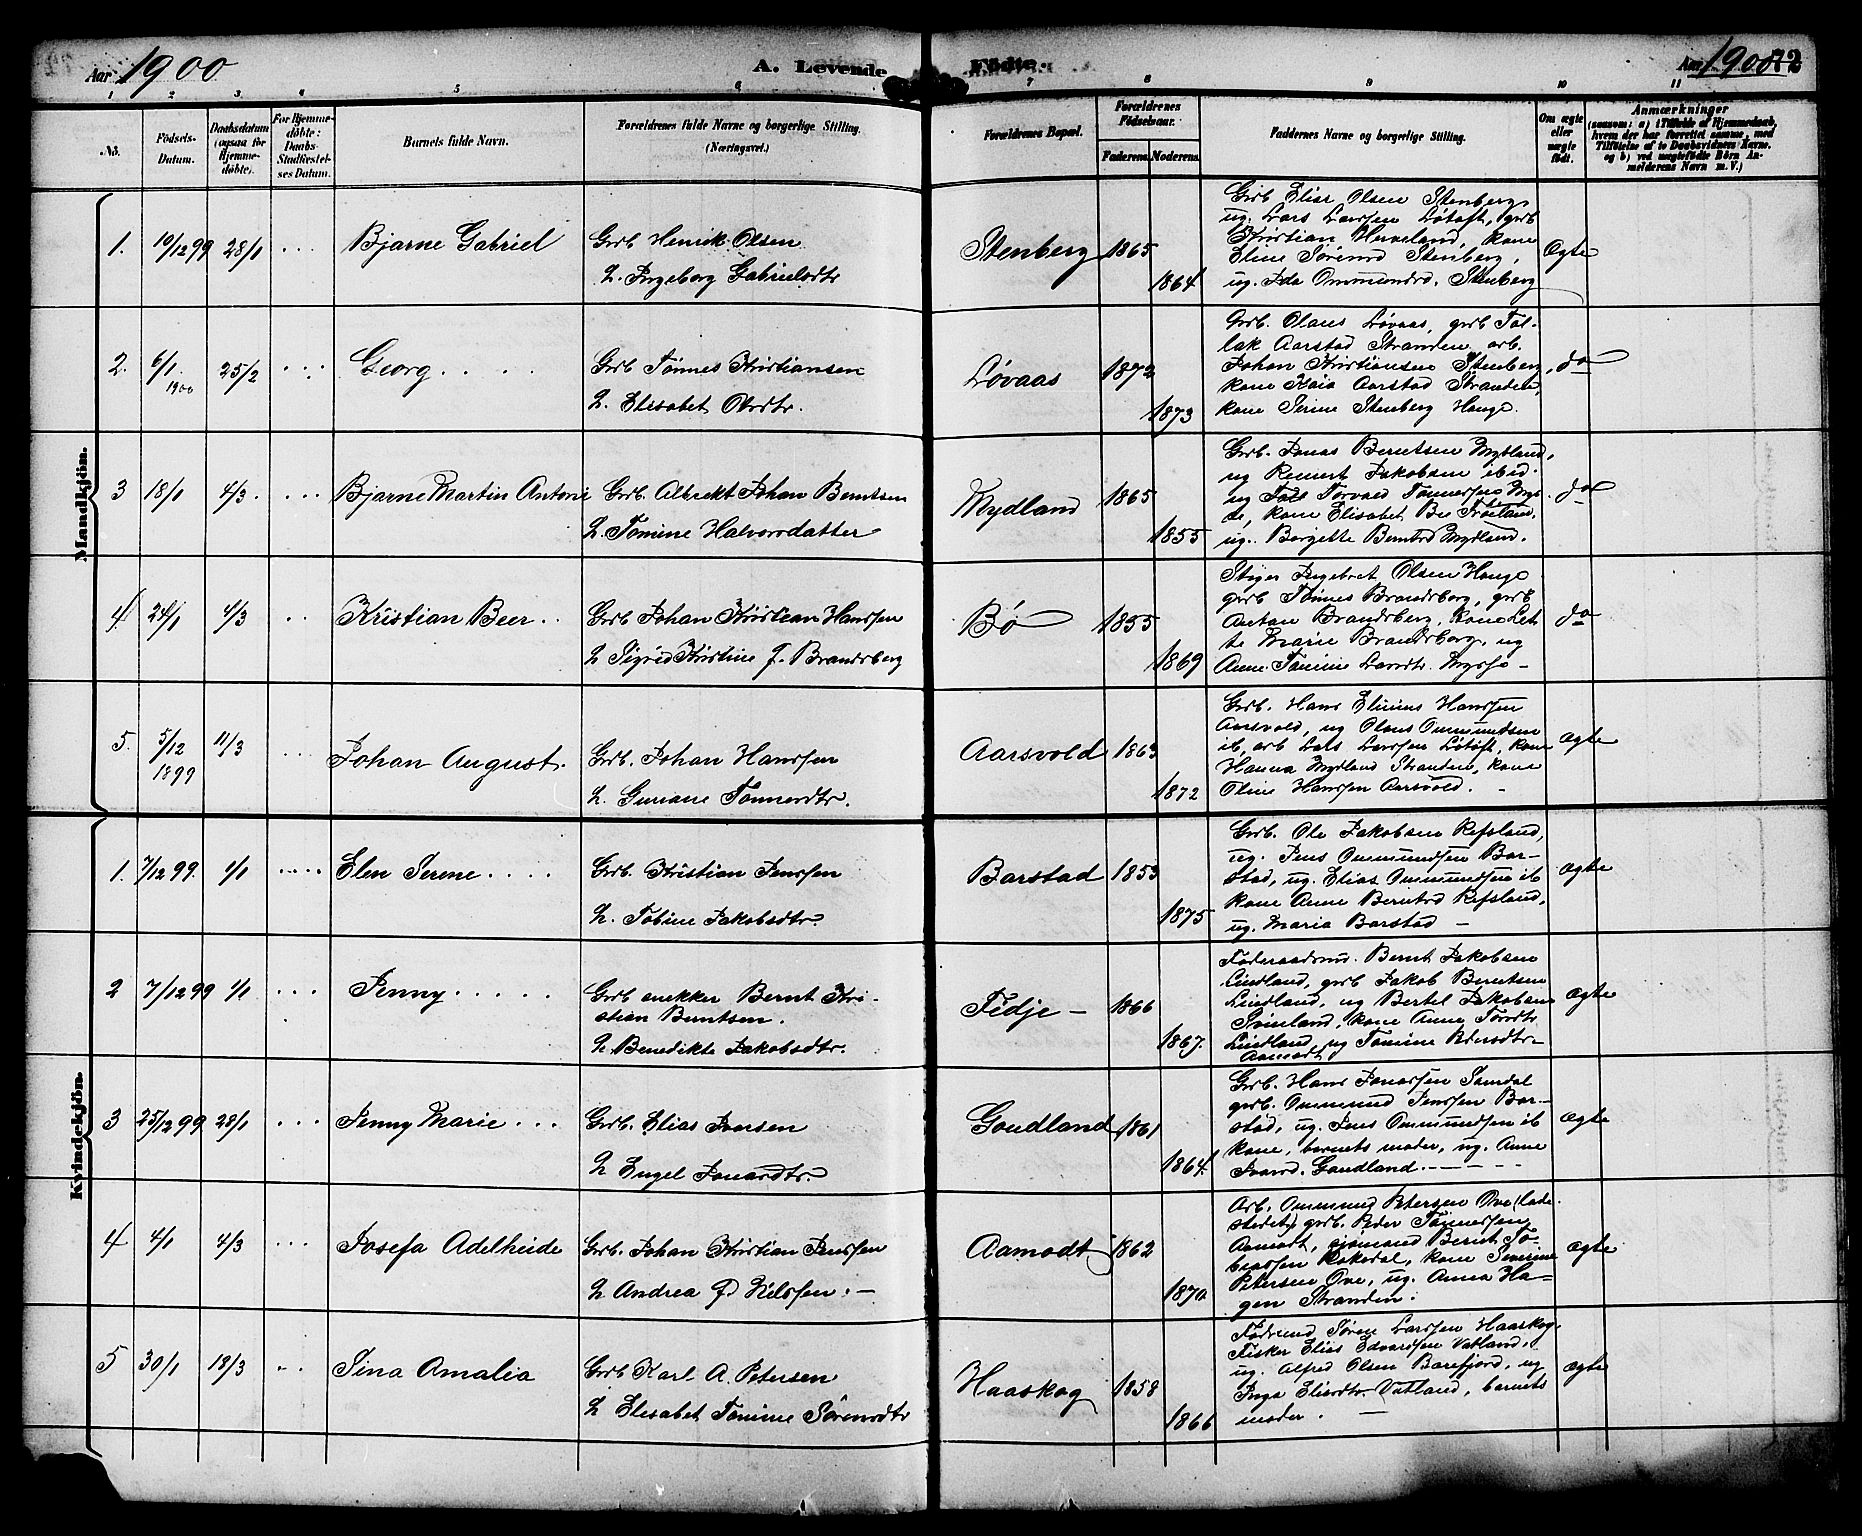 Aar 1900
A. Levende Födte.
Aar 1900
72
1 2 3 4 5 6 7 8 9 10 11
No.
Födsels-
Datum.
Daabsdatum
(ogsaa for
Hjemme-
döbte).
For Hjemme-
döbte:
Daabs-
Stadfæstel-
ses Datum.
Barnets fulde Navn.
Forældrenes fulde Navne og borgerlige Stilling.
(Næringsvei.)
Forældrenes Bopæl.
Forældrenes
Födselsaar.
Faderens.
Moderens.
Faddernes Navne og borgerlige Stilling.
Om ægte
eller
uægte
födt.
Anmærkninger
(saasom: a) i Tilfælde af Hjemmedaab,
hvem der har forrettet samme, med
Tilföielse af to Daabsvidners Navne.
og b) ved uægtefödte Börn An-
melderens Navn m. V.)
Mandkjön.
1. 10/12 99 28/1 Bjarne Gabriel
Grb Henrik Olsen
H. Ingeborg Gabrielsdtr
Stenberg 1865
1864
Grb Elias Olsen Stenberg,
ug. Lars Larssen Løtoft, grb
Kristian Hüveland, kone
Eline Sørensd Stenberg,
ug. Ida Ommundsd. Stenberg
Ægte
2. 6/1 1900 25/2 Georg
Grb Tønnes Kristiansen
H. Elisabet Olsdtr.
Løvaas 1872
1873
Grb. Olaus Løvaas, grb Tol-
lak Aarstad Stranden, arb.
Johan Kristiansen Stenberg,
kone Kaia Aarstad Stranden,
kone Serine Stenberg Hauge.
do
3 18/1 4/3 Bjarne Martin Antoni
Grb. Albrekt Johan Berntsen
H. Tomine Halvorsdatter
Mydland 1865
1855
Grb. Jonas Berntsen Mydland,
ug Reinert Jakobsen ibid.
ug Torvald Tønnessen
kone Elisabet Bee Frøiland,
ug. Borgette Berntsd Mydland.
do
4 24/1 4/3 Kristian Beer
Grb Johan Kristian Hanssen
H Sigrid Kristine f. Brandsberg
Bø 1855
1869
Stiger Ingebret Olsen Hauge
grb Tønnes Brandsberg, grb
Anton Brandsberg, kone Let-
te Marie Brandsberg, ug
Anne Tomine Larsdtr. Myssø
do
5. 5/12 1899 11/3 Johan August.
Grb. Johan Hanssen
H. Guriane Tønnesdtr.
Aarsvold 1863
1872
Grb. Hans Elinius Hanssen
Aarsvold, ug Olaus Ommundsen
ib, arb Lars Larssen Løtoft, kone
Hanna Mydland Stranden, kone
Oline Hanssen Aarsvold.
ægte
Kvindekjön.
1. 7/12 99. 1/1 Elen Serene
Grb. Kristian Jenssen
H. Tobine Jakobsdtr.
Barstad 1853
1875
Grb. Ole Jakobsen Refsland,
ug. Jens Ommundsen Bar-
stad, ug. Elias Ommundsen ib
kone Anne Berntsd Refsland,
ug. Maria Barstad
ægte
2 7/12 99 1/1 Jenny
Grb snekker Bernt Kri-
stian Berntsen.
H Benedikte Jakobsdtr.
Fidje 1866
1867.
Føderaadsmd. Bernt Jakobsen
Liudland, grb Jakob Berntsen
Liudland, ug Bertel Jakobsen
Svineland, kone Anne Torsdtr
Liudland, ug Tomine Pedersdtr
Aamodt
ægte
3 25/12 99 28/1 Jenny Marie
Grb. Elias Iversen
H Engel Jonasdtr.
Goudland 1861
1864.
Grb. Hans Jonassen Samdal
grb. Ommund Jenssen Bar-
stad, ug. Jens Ommundsen ib
kone, barnets moder, ug. Anne
Iversd. Goudland.
ægte
4 4/1 4/3 Josefa Adelheide
Grb. Johan Kristian Jenssen
H Andrea f. Nilssen.
Aamodt 1862
1870
Arb. Ommund Petersen Ove (lade-
stedet) grb. Peder Tønnessen
Aamodt, sjømand Bernt To-
biassen Rakedal, kone Severine
Petersen Ove, ug. Anna Ha-
gen Stranden.
ægte
5 30/1 18/3 Sina Amalia
Grb Karl A. Petersen
H Elisabet Tomine Sørensdtr
Haaskog 1858
1866
Fødrmd Søren Larssen Haaskog,
Fisker Elias Edvardsen Vatland,
ug. Alfred Olsen Barefjord, ug
Inga Eliesdtr Vatland, barnets
moder.
ægte